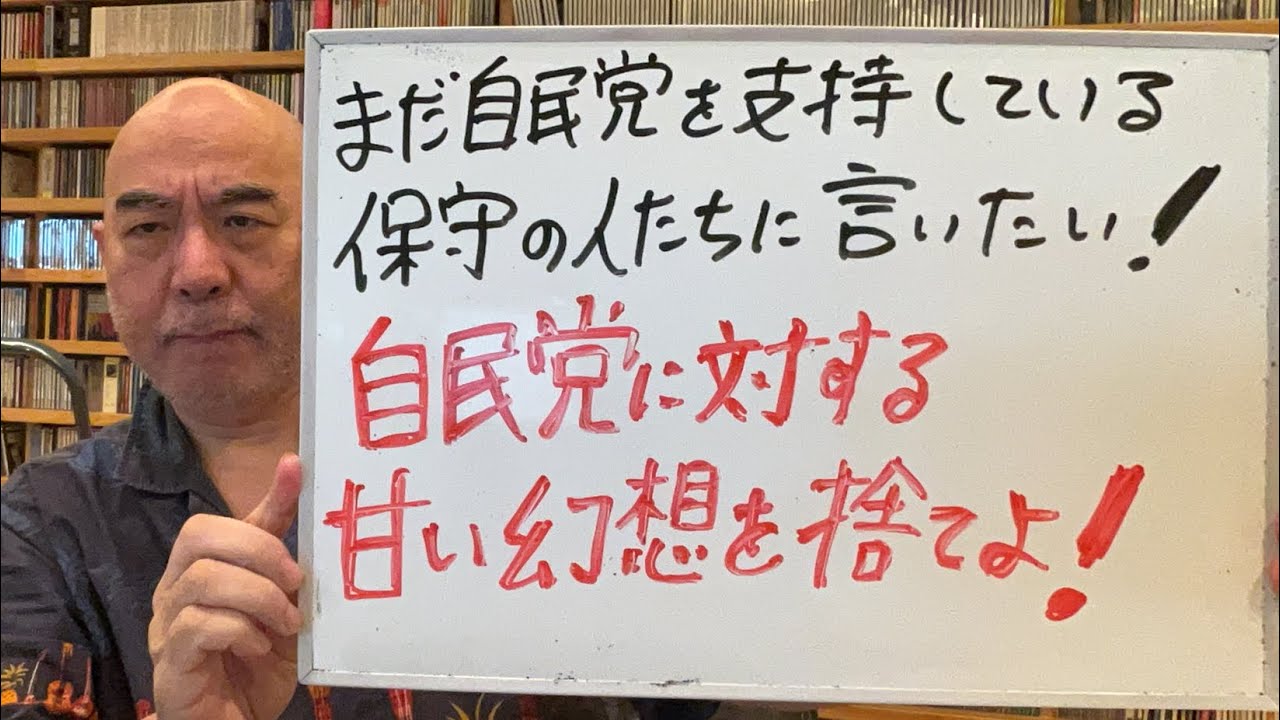 まだ自民党を支持している
保守の人たちに言いたい!
自民党に対する
甘い幻想を捨てよ!